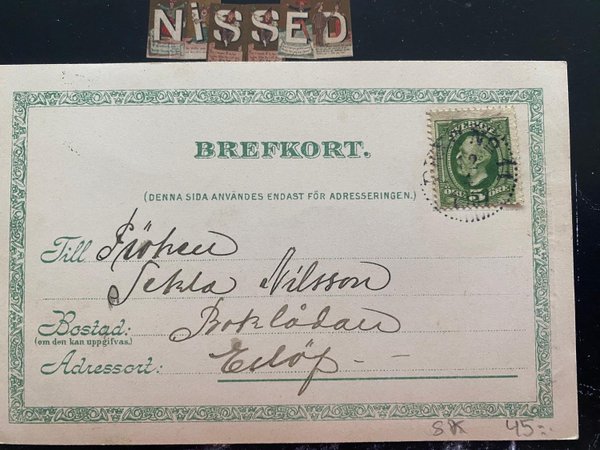 NiSSED
BREFKORT.
SVERIGE
5
(DENNA SIDA ANVÄNDES ENDAST FÖR ADRESSERINGEN.)
Till Fröken
Tekla Nilsson
Bostad: Boklådan
(om den kan uppgifvas.)
Adressort: Eslöf
SK 45:-